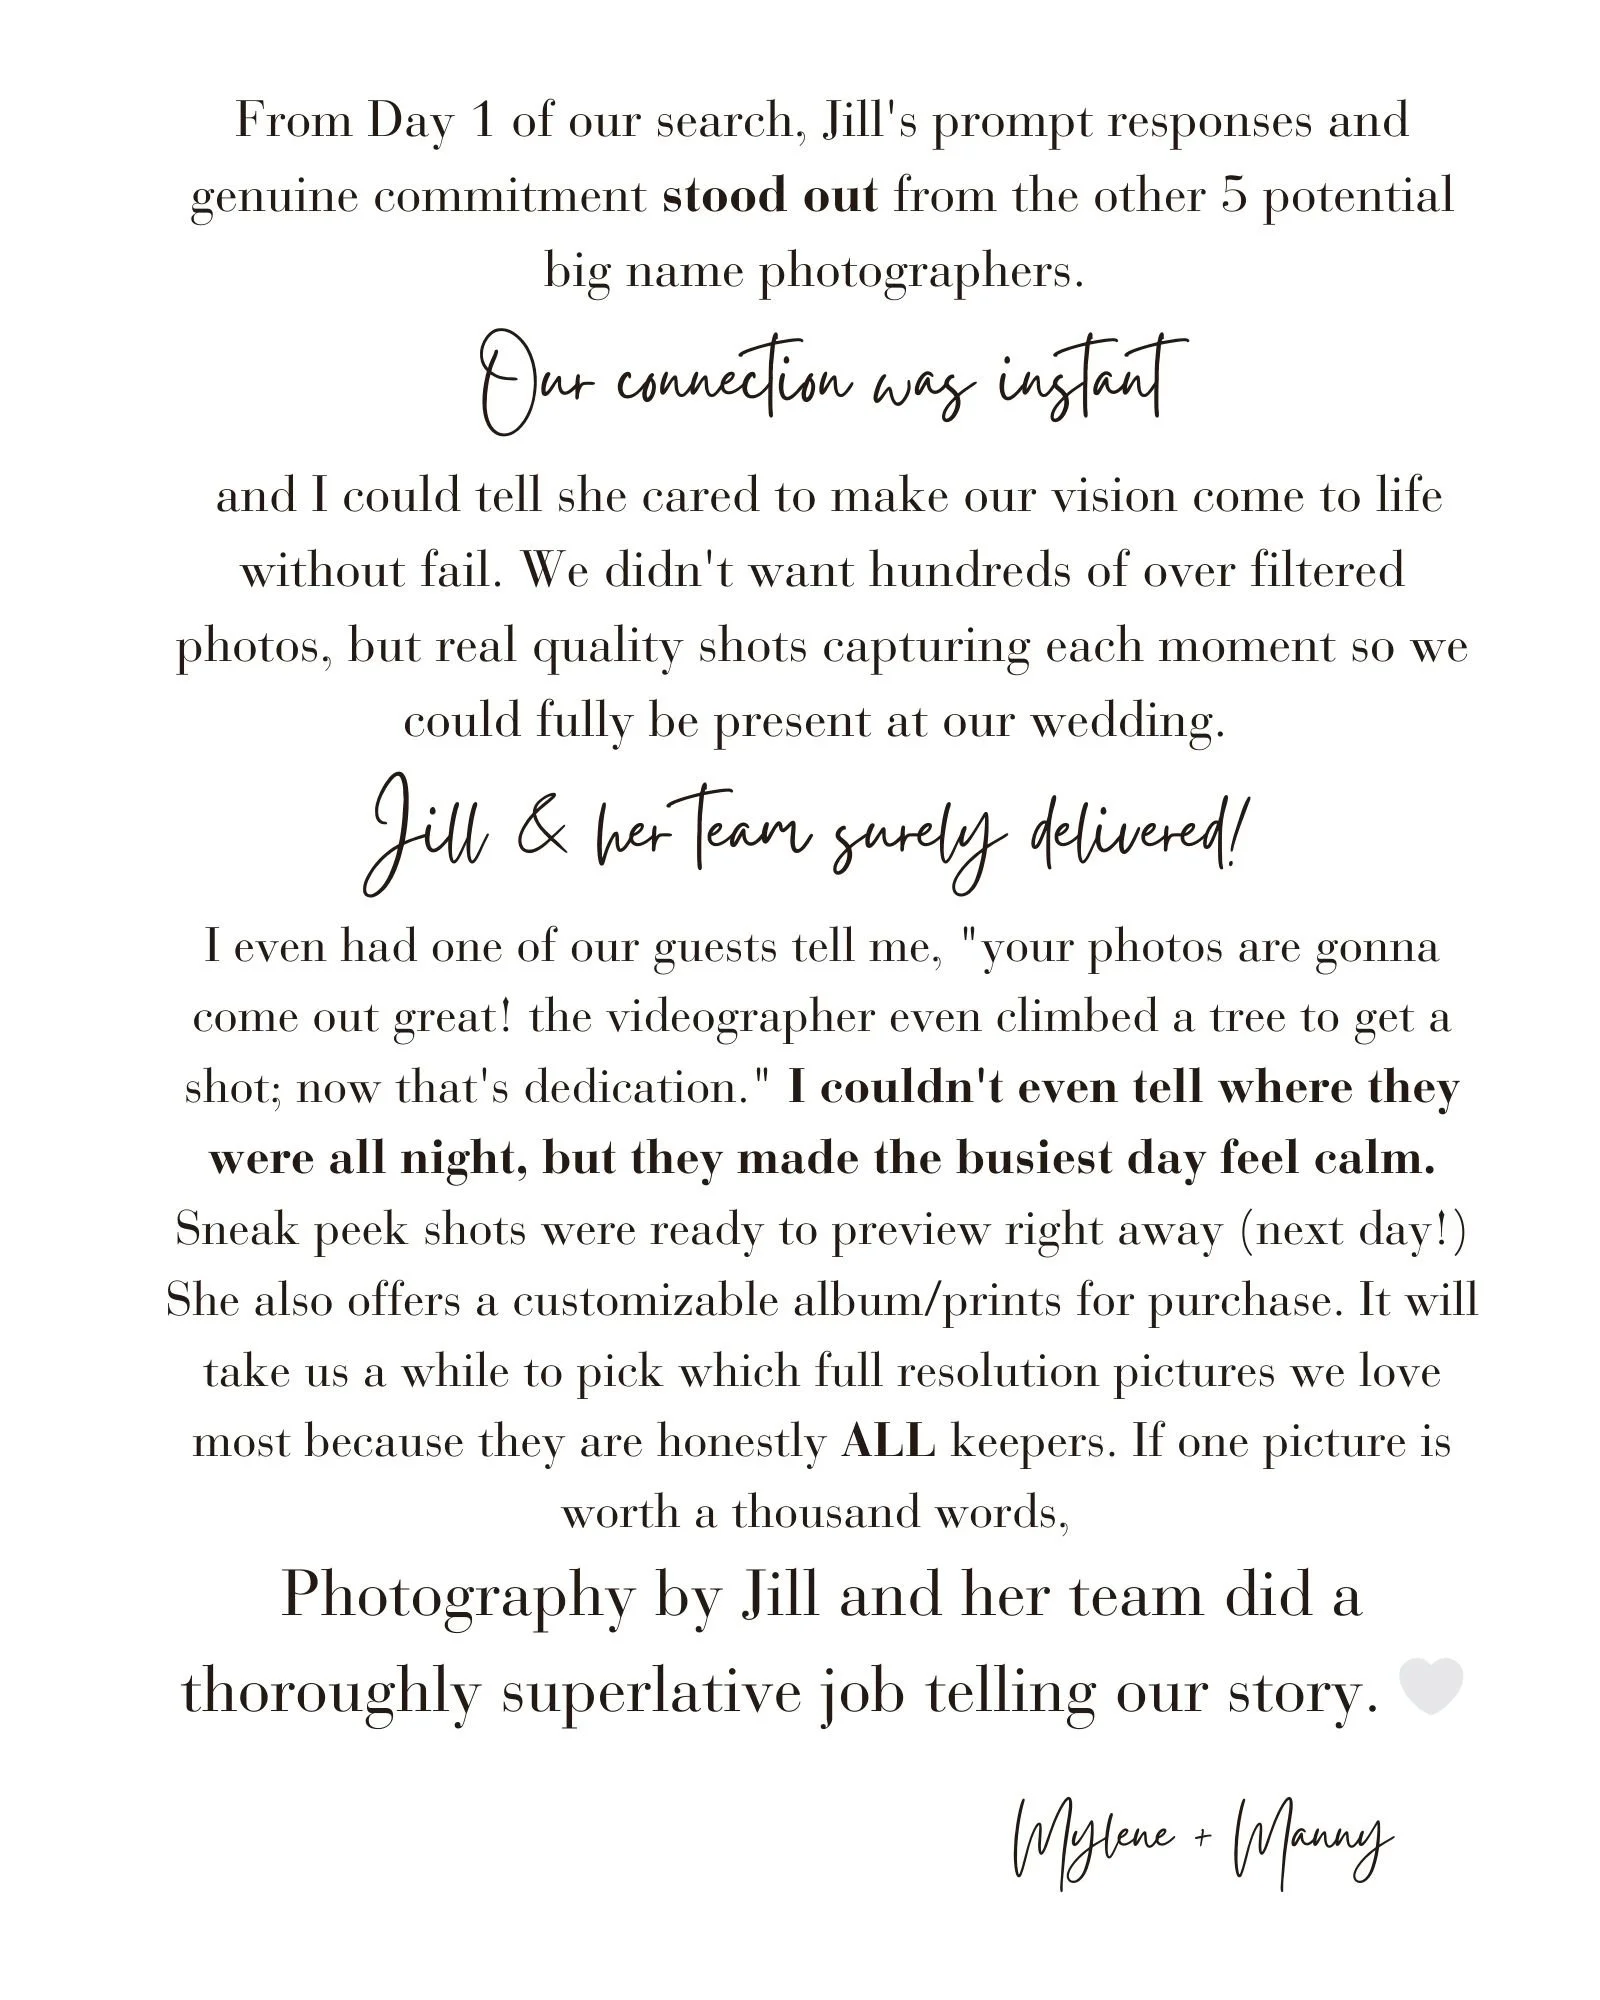 From Day 1 of our search, Jill's prompt responses and
genuine commitment stood out from the other 5 potential
big name photographers.
Our connection was instant
and I could tell she cared to make our vision come to life
without fail. We didn't want hundreds of over filtered
photos, but real quality shots capturing each moment so we
could fully be present at our wedding.
Jill & her team surely delivered!
I even had one of our guests tell me, "your photos are gonna
come out great! the videographer even climbed a tree to get a
shot; now that's dedication." I couldn't even tell where they
were all night, but they made the busiest day feel calm.
Sneak peek shots were ready to preview right away (next day!)
She also offers a customizable album/prints for purchase. It will
take us a while to pick which full resolution pictures we love
most because they are honestly ALL keepers. If one picture is
worth a thousand words,
Photography by Jill and her team did a
thoroughly superlative job telling our story.
Mylene + Manny